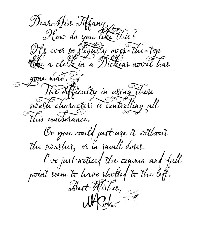 Dear Mr Tiffany,
How do you like this?
It's ever so slightly over-the-top
like a clerk in a Dickens novel has
gone mad.
The difficulty in using these
swash characters is controlling all
this exuberance.
Or you could just use it without
the swashes, or in small doses.
I've just noticed the comma and full
point seem to have shifted to the left.
Best Wishes,